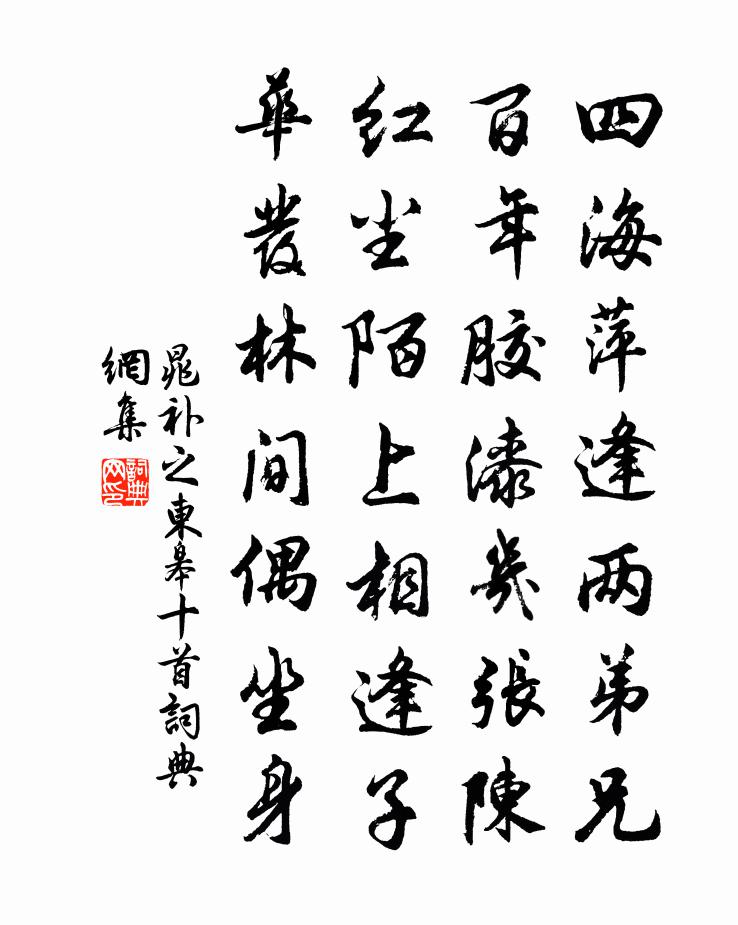 四海萍逢两弟兄
百年胶漆幾張陳
红尘陌上相逢子
華發林间偶坐身
晁补之東皋十首詞典
網集
詞典
网印